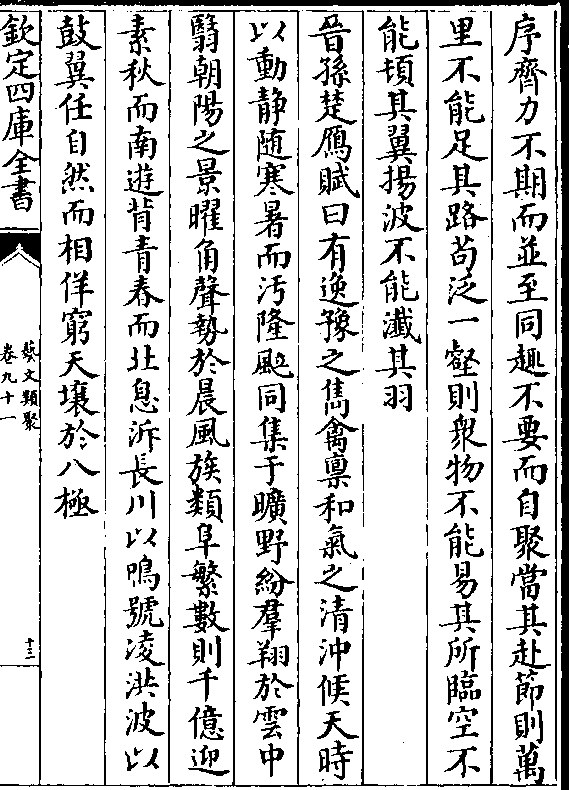 序齊力不期而並至同趣不要而自聚當其赴節則萬
里不能足其路苟泛一壑則衆物不能易其所臨空不
能頓其翼揚波不能瀸其羽
晉孫楚鴈賦曰有逸豫之雋禽禀和氣之清沖候天時
以動静随寒暑而汚隆颮同集于曠野紛羣翔於雲中
翳朝陽之景曜角聲勢於晨風族類阜繁數則千億迎
素秋而南遊背青春而北息泝長川以鳴號凌洪波以
鼓翼任自然而相佯窮天壤於八極
欽定四庫全書
藝文類聚
卷九十一
十三